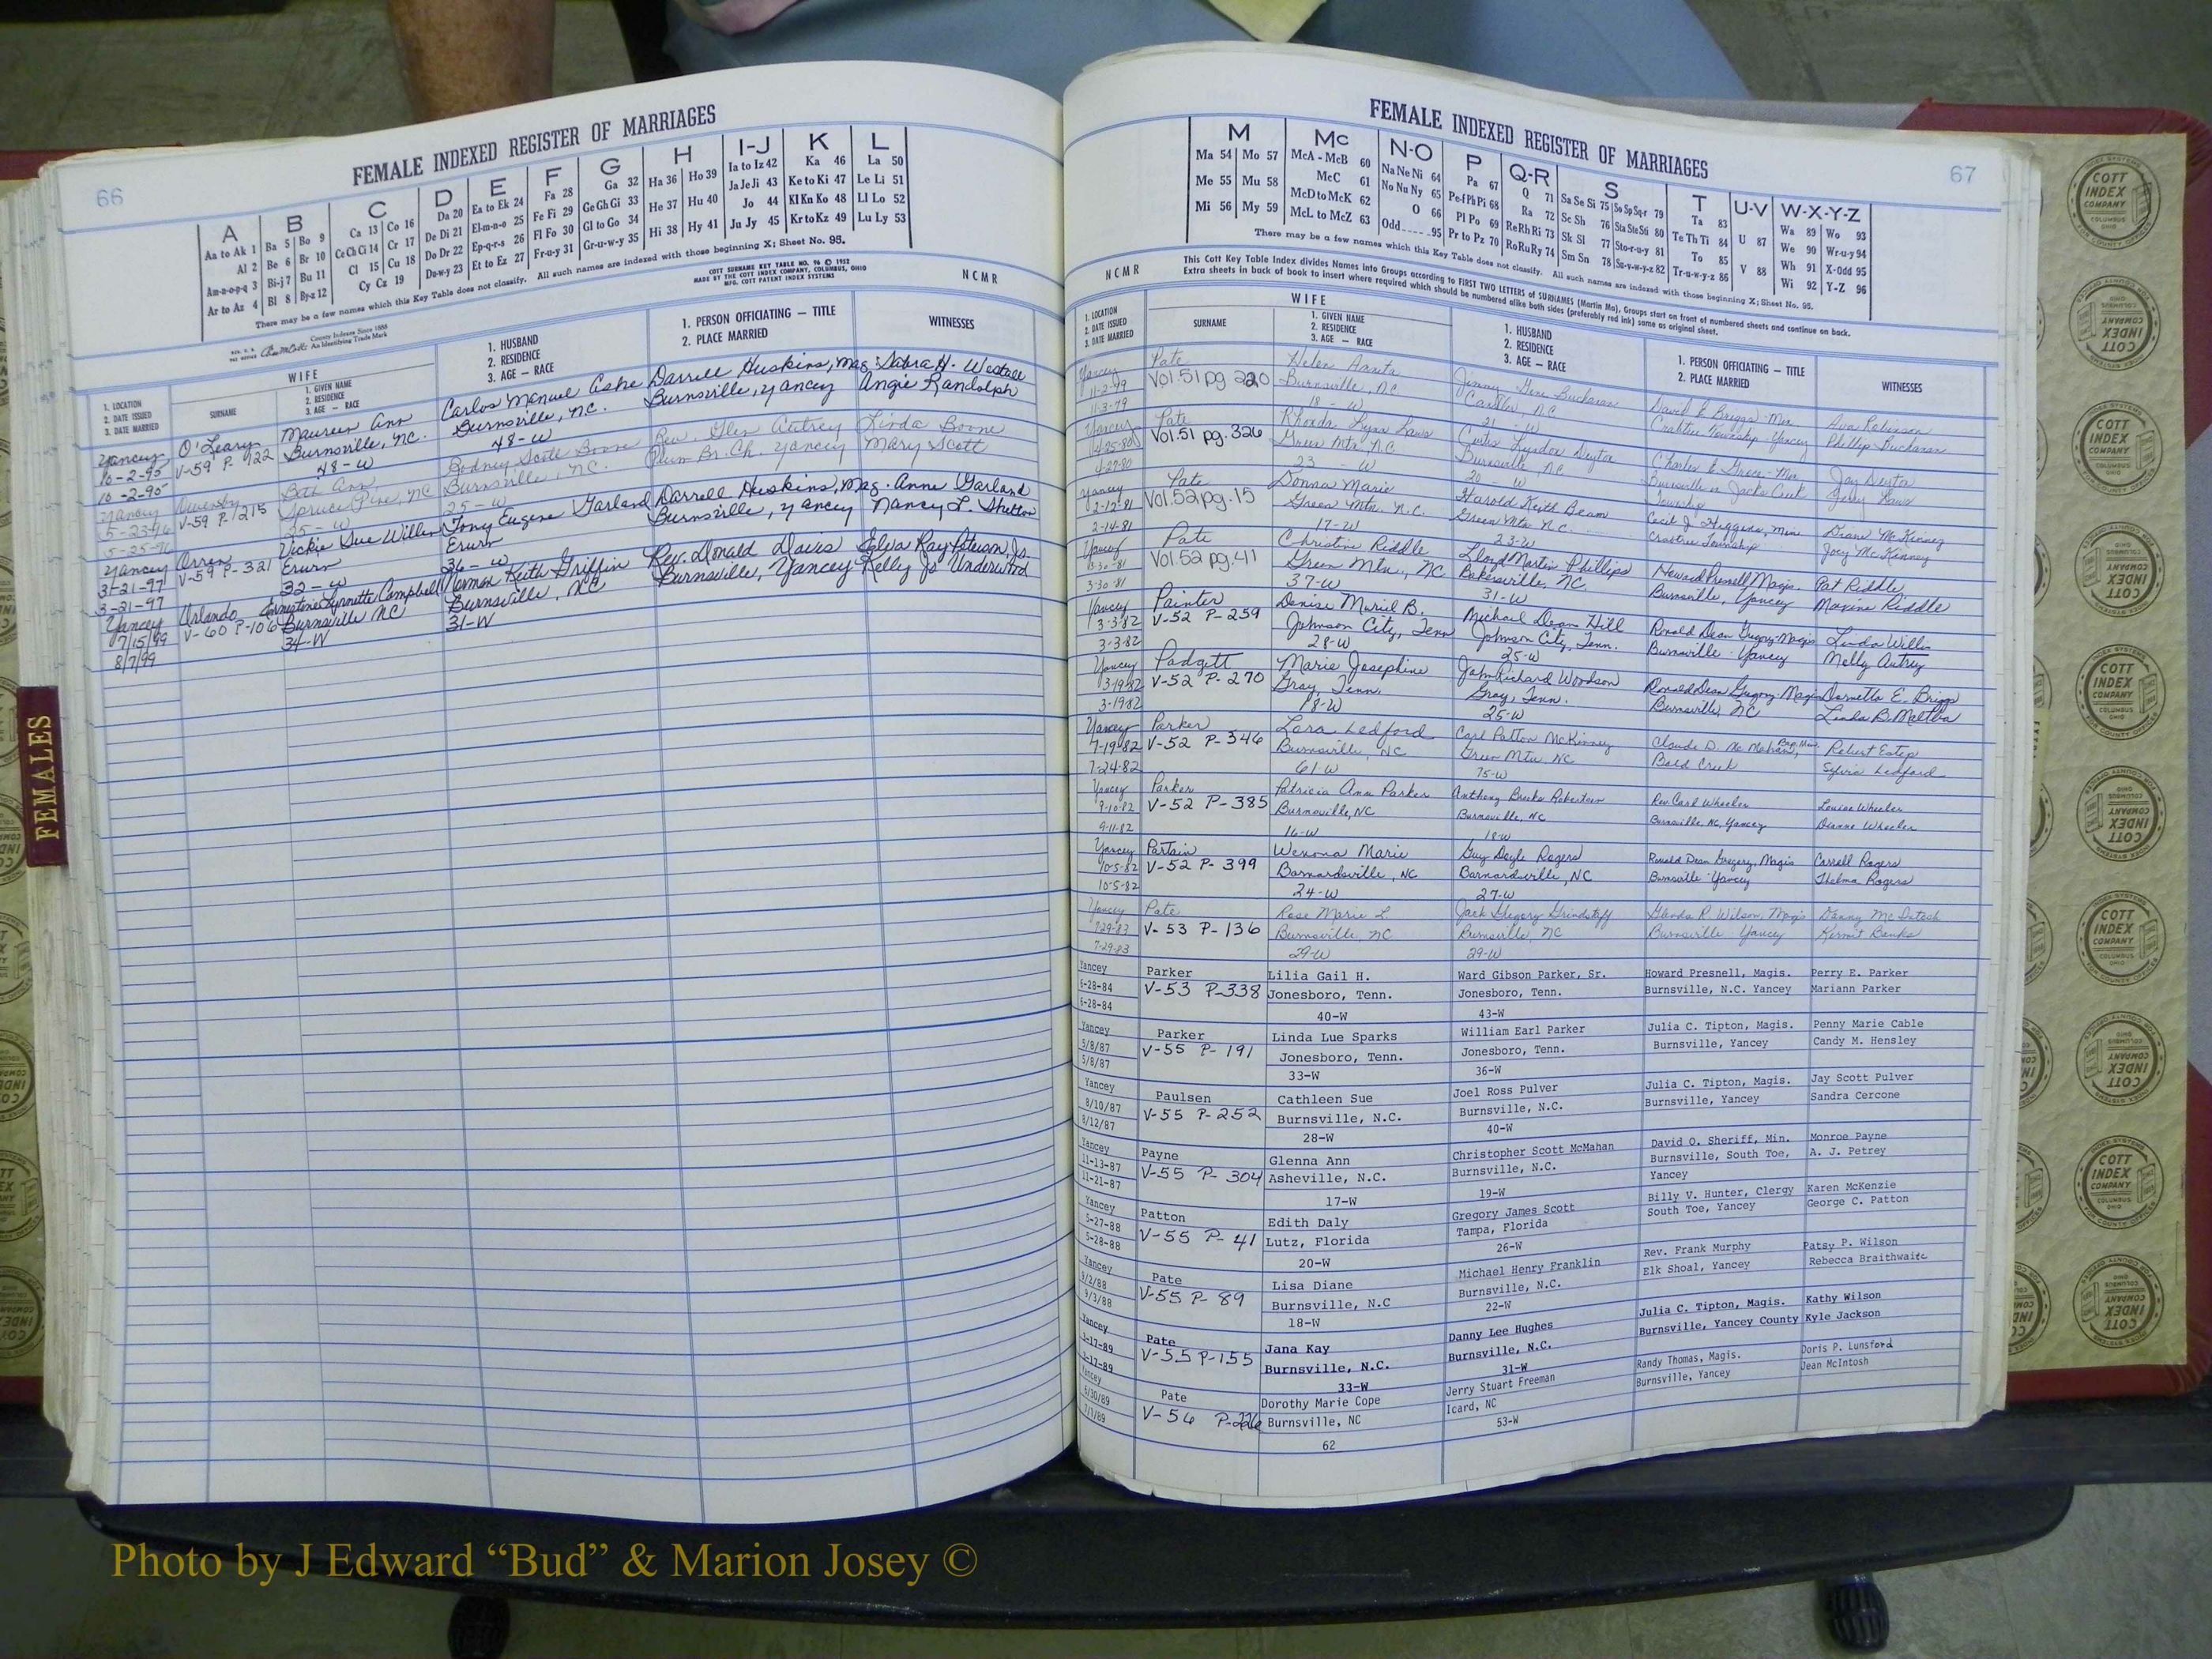 66
FEMALE INDEXED REGISTER OF MARRIAGES
A B C D E F G H I-J K L
Aa to Ak 1 Ba 5 Bo 9 Ca 13 Co 16 Da 20 Ea to Ek 24 Fa 28 Ga 32 Ha 36 Ho 39 Ia to Iz 42 Ka 46 La 50
Al 2 Be 6 Br 10 Ce Ch Ci 14 Cr 17 De Di 21 El-m-n-o 25 Fe Fi 29 Ge Gh Gi 33 He 37 Hu 40 Ja Je Ji 43 Ke to Ki 47 Le Li 51
Am-n-o-p-q 3 Bi-j 7 Bu 11 Cl 15 Cu 18 Do Dr 22 Ep-q-r-s 26 Fl Fo 30 Gl to Go 34 Hi 38 Hy 41 Jo 44 Kl Kn Ko 48 Ll Lo 52
Ar to Az 4 Bl 8 By-z 12 Cy Cz 19 Du-w-y 23 Et to Ez 27 Fr-u-y 31 Gr-u-w-y 35 Ju Jy 45 Kr to Kz 49 Lu Ly 53
There may be a few names which this Key Table does not classify. All such names are indexed with those beginning X; Sheet No. 95.
County Indexes Since 1888
An Identifying Trade Mark
COTT SURNAME KEY TABLE NO. 96 © 1952
MADE BY THE COTT INDEX COMPANY, COLUMBUS, OHIO
MFG. COTT PATENT INDEX SYSTEMS
NCMR
1. LOCATION
2. DATE ISSUED
3. DATE MARRIED
WIFE
SURNAME
1. GIVEN NAME
2. RESIDENCE
3. AGE — RACE
1. HUSBAND
2. RESIDENCE
3. AGE — RACE
1. PERSON OFFICIATING — TITLE
2. PLACE MARRIED
WITNESSES
Yancey O'Leary Maureen Ann Carlos Manuel Ashe Darrell Huskins, Mag. Debra H. Westall
10-2-95 V-59 P. 922 Burnsville, NC. Burnsville, NC. Burnsville, Yancey Angie Randolph
10-2-95 48-W 48-W
Yancey Owenby Beth Ann Rodney Scott Boone Rev. Glen Autrey Linda Boone
5-23-96 V-59 P. 1215 Spruce Pine, NC Burnsville, NC. Plum Br. Ch. Yancey Mary Scott
5-25-96 25-W 25-W
Yancey Orren Vickie Sue Willen Tony Eugene Garland Darrell Huskins, Mag. Anne Garland
3-21-97 V-59 P-321 Erwin Erwin Burnsville, Yancey Nancy L. Shelton
3-21-97 32-W 36-W
Yancey Orlando Ernestine Lynnette Campbell Norman Keith Griffin Rev. Donald Davis Elva Ray Peterson, Jr.
7/15/99 V-60 P-106 Burnsville NC Burnsville, NC Burnsville, Yancey Kelly Jo Underwood
8/7/99 34-W 31-W
FEMALES
67
FEMALE INDEXED REGISTER OF MARRIAGES
M Mc N-O P Q-R S T U-V W-X-Y-Z
Ma 54 Mo 57 McA - McB 60 Na Ne Ni 64 Pa 67 Q 71 Sa Se Si 75 So Sp Sq-r 79 Ta 83 U 87 Wa 89 Wo 93
Me 55 Mu 58 McC 61 No Nu Ny 65 Pe-f Ph Pi 68 Ra 72 Sc Sh 76 Sta Ste Sti 80 Te Th Ti 84 V 88 We 90 Wr-u-y 94
Mi 56 My 59 McD to McK 62 O 66 Pl Po 69 Re Rh Ri 73 Sk Sl 77 Sto-r-u-y 81 To 85 Wh 91 X-Odd 95
McL to McZ 63 Odd 95 Pr to Pz 70 Ro Ru Ry 74 Sm Sn 78 Su-v-w-y-z 82 Tr-u-w-y-z 86 Wi 92 Y-Z 96
There may be a few names which this Key Table does not classify. All such names are indexed with those beginning X; Sheet No. 95.
NCMR
This Cott Key Table Index divides Names into Groups according to FIRST TWO LETTERS of SURNAMES (Martin Ma), Groups start on front of numbered sheets and continue on back.
Extra sheets in back of book to insert where required which should be numbered alike both sides (preferably red ink) same as original sheet.
1. LOCATION
2. DATE ISSUED
3. DATE MARRIED
WIFE
SURNAME
1. GIVEN NAME
2. RESIDENCE
3. AGE — RACE
1. HUSBAND
2. RESIDENCE
3. AGE — RACE
1. PERSON OFFICIATING — TITLE
2. PLACE MARRIED
WITNESSES
Yancey Pate Helen Anita Jimmy Gene Buchanan David E Briggs - Min. Ava Robinson
11-2-79 Vol. 51 pg 220 Burnsville, N.C. Candler, N.C Crabtree Township Yancey Phillip Buchanan
11-3-79 18 - W 21 - W
Yancey Pate Rhonda Lynn Laws Curtis Lyndon Deyton Charles E Greer - Min. Jay Deyton
4-25-80 Vol. 51 pg. 326 Green Mtn. N.C. Burnsville, N.C. Burnsville Jacks Creek Township
4-27-80 23 - W 20 - W
Yancey Pate Donna Marie Harold Keith Beam Cecil J Higgins, Min Diane McKinney
2-12-81 Vol. 52 pg. 15 Green Mtn. N.C. Green Mtn. N.C. Crabtree Township Joey McKinney
2-14-81 17-W 23-W
Yancey Pate Christine Riddle Lloyd Martin Phillips Howard Presnell Magis. Pat Riddle
3-30-81 Vol. 52 pg. 41 Green Mtn., NC Bakersville, NC. Burnsville, Yancey Maxine Riddle
3-30-81 37-W 31-W
Yancey Painter Denise Muriel B. Michael Dean Hill Ronald Dean Gregory-Magis Linda Willis
3-3-82 V-52 P-259 Johnson City, Tenn Johnson City, Tenn. Burnsville - Yancey Melly Autrey
3-3-82 28-W 25-W
Yancey Padgett Marie Josephine John Richard Woodson Ronald Dean Gregory-Magis Darnetta E. Briggs
3-19-82 V-52 P-270 Gray, Tenn. Gray, Tenn. Burnsville, NC Linda B. Maltba
3-19-82 18-W 25-W
Yancey Parker Lora Ledford Carl Patton McKinney Claude D. McMahan, Bap. Min. Robert Estep
7-19-82 V-52 P-346 Burnsville, NC Green Mtn. NC Bald Creek Sylvia Ledford
7-24-82 61-W 75-W
Yancey Parker Patricia Ann Parker Anthony Brooks Robertson Rev. Carl Wheeler Louise Wheeler
9-10-82 V-52 P-385 Burnsville, NC Burnsville, NC Burnsville, NC, Yancey Dianne Wheeler
9-11-82 16-W 18-W
Yancey Partain Wenona Marie Guy Doyle Rogers Ronald Dean Gregory, Magis Carroll Rogers
10-5-82 V-52 P-399 Barnardsville, NC Barnardsville, NC Burnsville - Yancey Thelma Rogers
10-5-82 24-W 27-W
Yancey Pate Rose Marie L. Jack Gregory Grindstaff Glenda R. Wilson, Magis Danny McIntosh
7-29-83 V-53 P-136 Burnsville, NC Burnsville, NC Burnsville Yancey Kermit Banks
7-29-83 29-W 29-W
Yancey Parker Lilia Gail H. Ward Gibson Parker, Sr. Howard Presnell, Magis. Perry E. Parker
6-28-84 V-53 P-338 Jonesboro, Tenn. Jonesboro, Tenn. Burnsville, N.C. Yancey Mariann Parker
6-28-84 40-W 43-W
Yancey Parker Linda Lue Sparks William Earl Parker Julia C. Tipton, Magis. Penny Marie Cable
5/8/87 V-55 P-191 Jonesboro, Tenn. Jonesboro, Tenn. Burnsville, Yancey Candy M. Hensley
5/8/87 33-W 36-W
Yancey Paulsen Cathleen Sue Joel Ross Pulver Julia C. Tipton, Magis. Jay Scott Pulver
8/10/87 V-55 P-252 Burnsville, N.C. Burnsville, N.C. Burnsville, Yancey Sandra Cercone
8/12/87 28-W 40-W
Yancey Payne Glenna Ann Christopher Scott McMahan David O. Sheriff, Min. Monroe Payne
11-13-87 V-55 P-304 Asheville, N.C. Burnsville, N.C. Burnsville, South Toe, A. J. Petrey
11-21-87 17-W 19-W Yancey
Yancey Patton Edith Daly Gregory James Scott Billy V. Hunter, Clergy Karen McKenzie
5-27-88 V-55 P-41 Lutz, Florida Tampa, Florida South Toe, Yancey George C. Patton
5-28-88 20-W 26-W
Yancey Pate Lisa Diane Michael Henry Franklin Rev. Frank Murphy Patsy P. Wilson
9/2/88 V-55 P-89 Burnsville, N.C Burnsville, N.C. Elk Shoal, Yancey Rebecca Braithwaite
9/3/88 18-W 22-W
Yancey Pate Jana Kay Danny Lee Hughes Julia C. Tipton, Magis. Kathy Wilson
1-17-89 V-55 P-155 Burnsville, N.C. Burnsville, N.C. Burnsville, Yancey County Kyle Jackson
1-17-89 33-W 31-W
Yancey Pate Dorothy Marie Cope Jerry Stuart Freeman Randy Thomas, Magis. Doris P. Lunsford
6/30/89 V-56 P-226 Burnsville, NC Icard, NC Burnsville, Yancey Jean McIntosh
7/1/89 62 53-W
COTT INDEX COMPANY COLUMBUS OHIO
Photo by J Edward “Bud” & Marion Josey ©